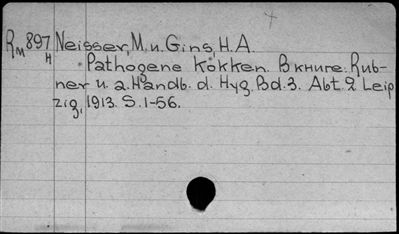 RM897 Neisser, M. u. Gins, H. A.
H
Pathogene Kokken. В книге: Rub-
ner u. a. Handb. d. Hyg. Bd. 3. Abt. 2. Leip
zig, 1913. S. 1-56.